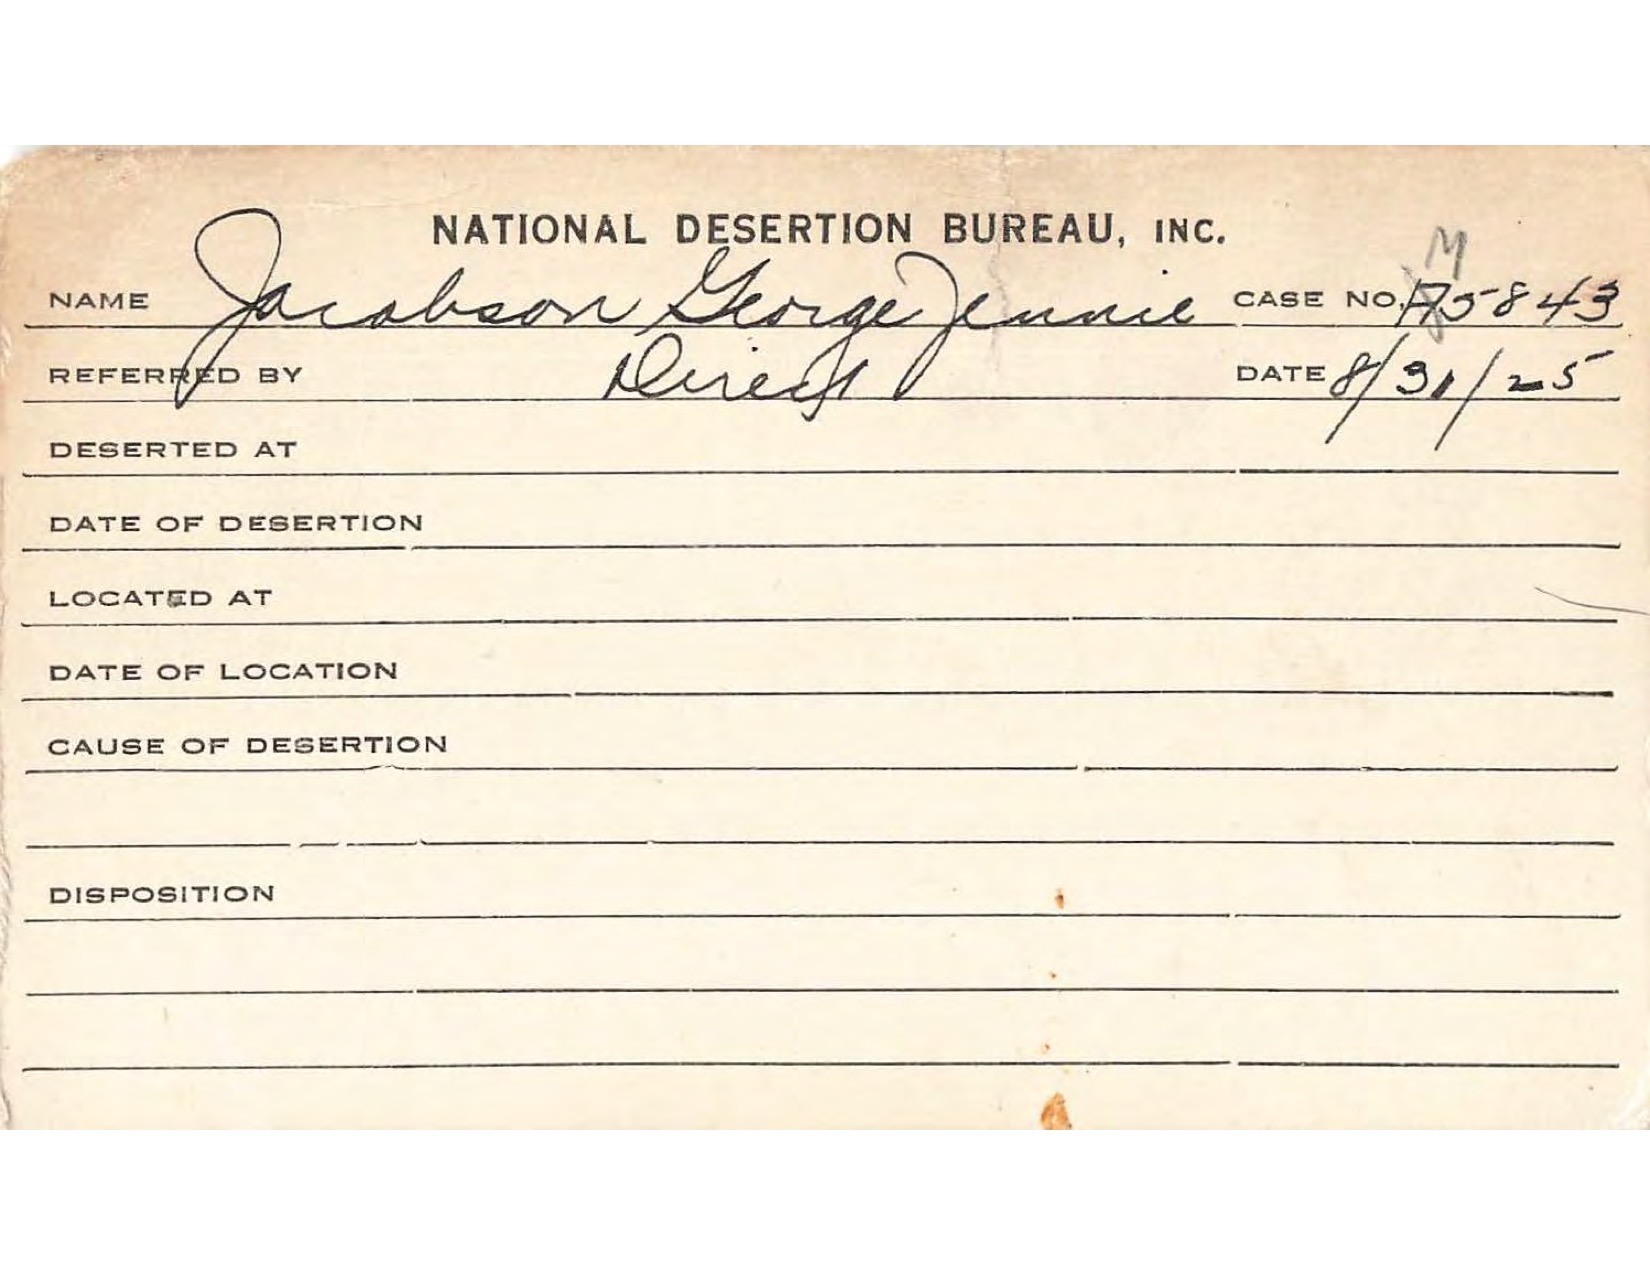 NATIONAL DESERTION BUREAU, INC.
NAME Jacobson George Jennie CASE NO. A5843 M
REFERRED BY Direct DATE 8/31/25
DESERTED AT
DATE OF DESERTION
LOCATED AT
DATE OF LOCATION
CAUSE OF DESERTION
DISPOSITION